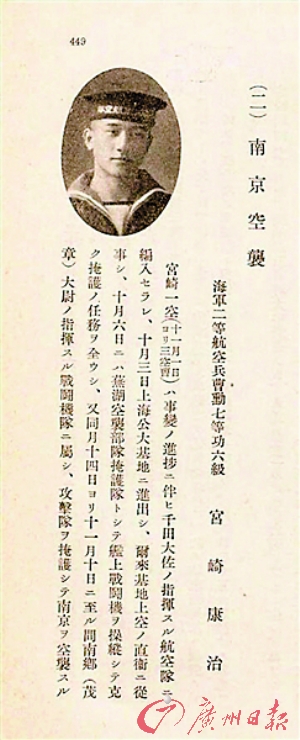 449
(二) 南京空襲
海軍二等航空兵曹勳七等功六級 宮崎康治
宮崎一空(十一月一日ヨリ三空曹)ハ事變ノ進捗ニ伴ヒ千田大佐ノ指揮スル航空隊ニ
編入セラレ、十月三日上海公大基地ニ進出シ、爾來基地上空ノ直衞ニ從
事シ、十月六日ニハ蕪湖空襲部隊掩護隊トシテ艦上戰鬪機ヲ操縱シテ克
ク掩護ノ任務ヲ全ウシ、又同月十四日ヨリ十一月十日ニ至ル間南鄕(茂
章)大尉ノ指揮スル戰鬪機隊ニ屬シ、攻擊隊ヲ掩護シテ南京ヲ空襲スル
廣州日报